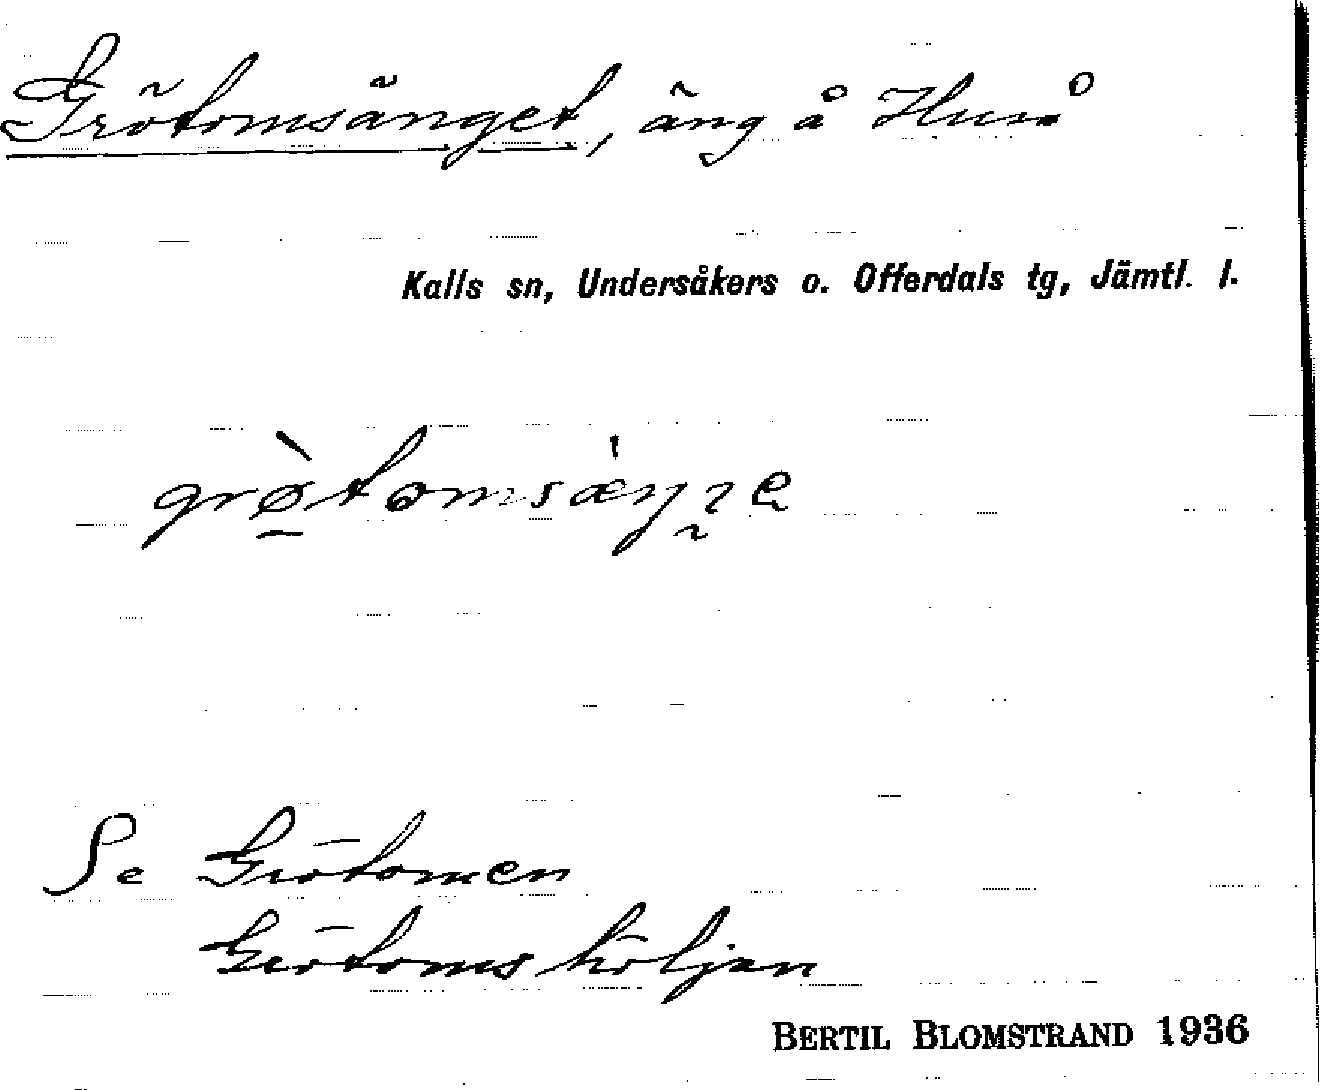 Grötomsänget, äng å Huså
Kalls sn, Undersåkers o. Offerdals tg, Jämtl. l.
grø̀tomsæ̀ŋʒe
Se Grötomen
Grötomshöljan
BERTIL BLOMSTRAND 1936